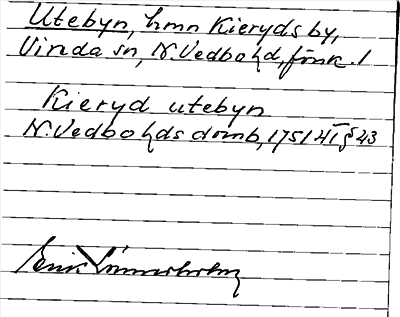 Utebyn, hmn Kieryds by,
Vireda sn, N. Vedbo hd, försv. l
Kieryd utebyn
N. Vedbo hds domb, 1751 VT § 23
Erik Linnerholm